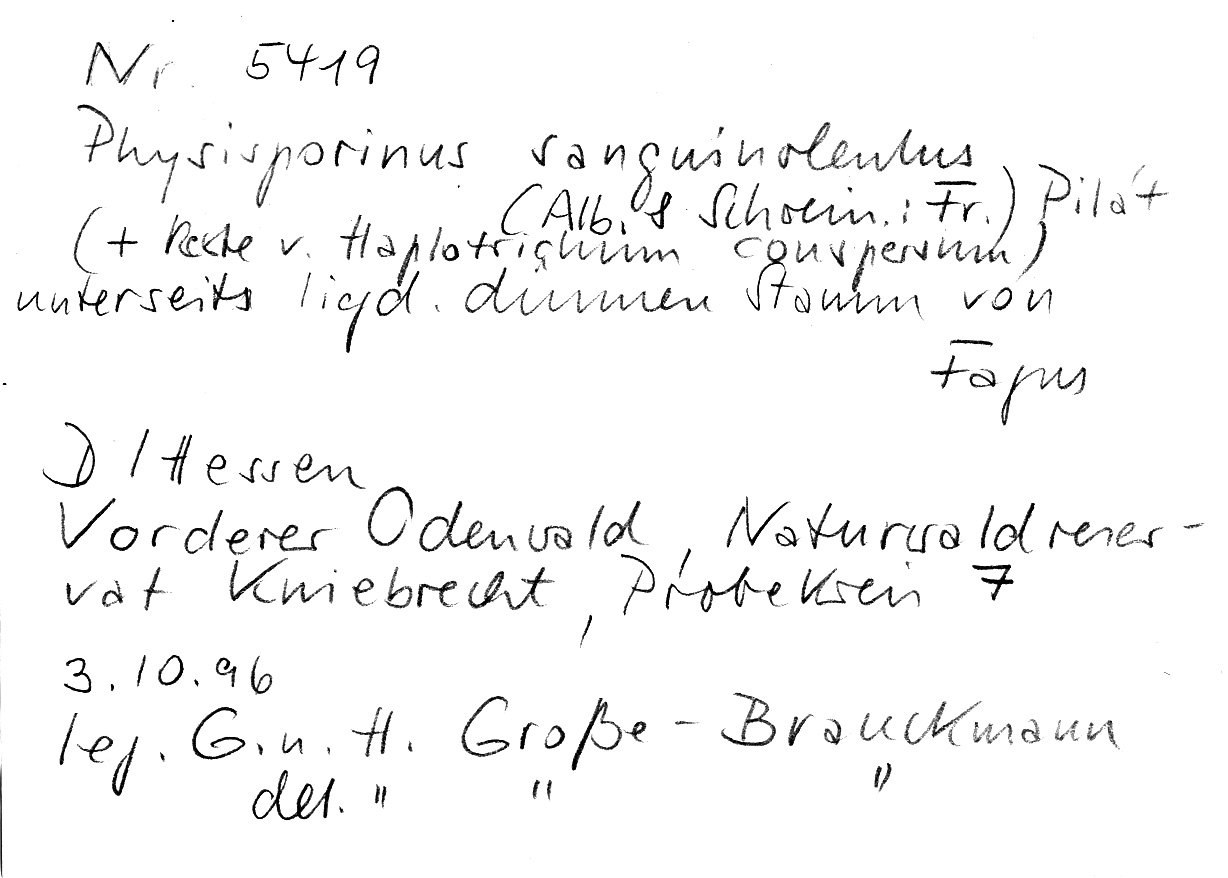 Nr. 5419
Physisporinus sanguinolentus
(Alb. & Schwein.: Fr.) Pilát
(+ Reste v. Haplotrichum conspersum)
unterseits liegd. dünnen Stamm von
Fagus
D / Hessen
Vorderer Odenwald, Naturwaldreser-
vat Kniebrecht, Probekreis 7
3.10.96
leg. G. u. H. Große-Brauckmann
det. " " "